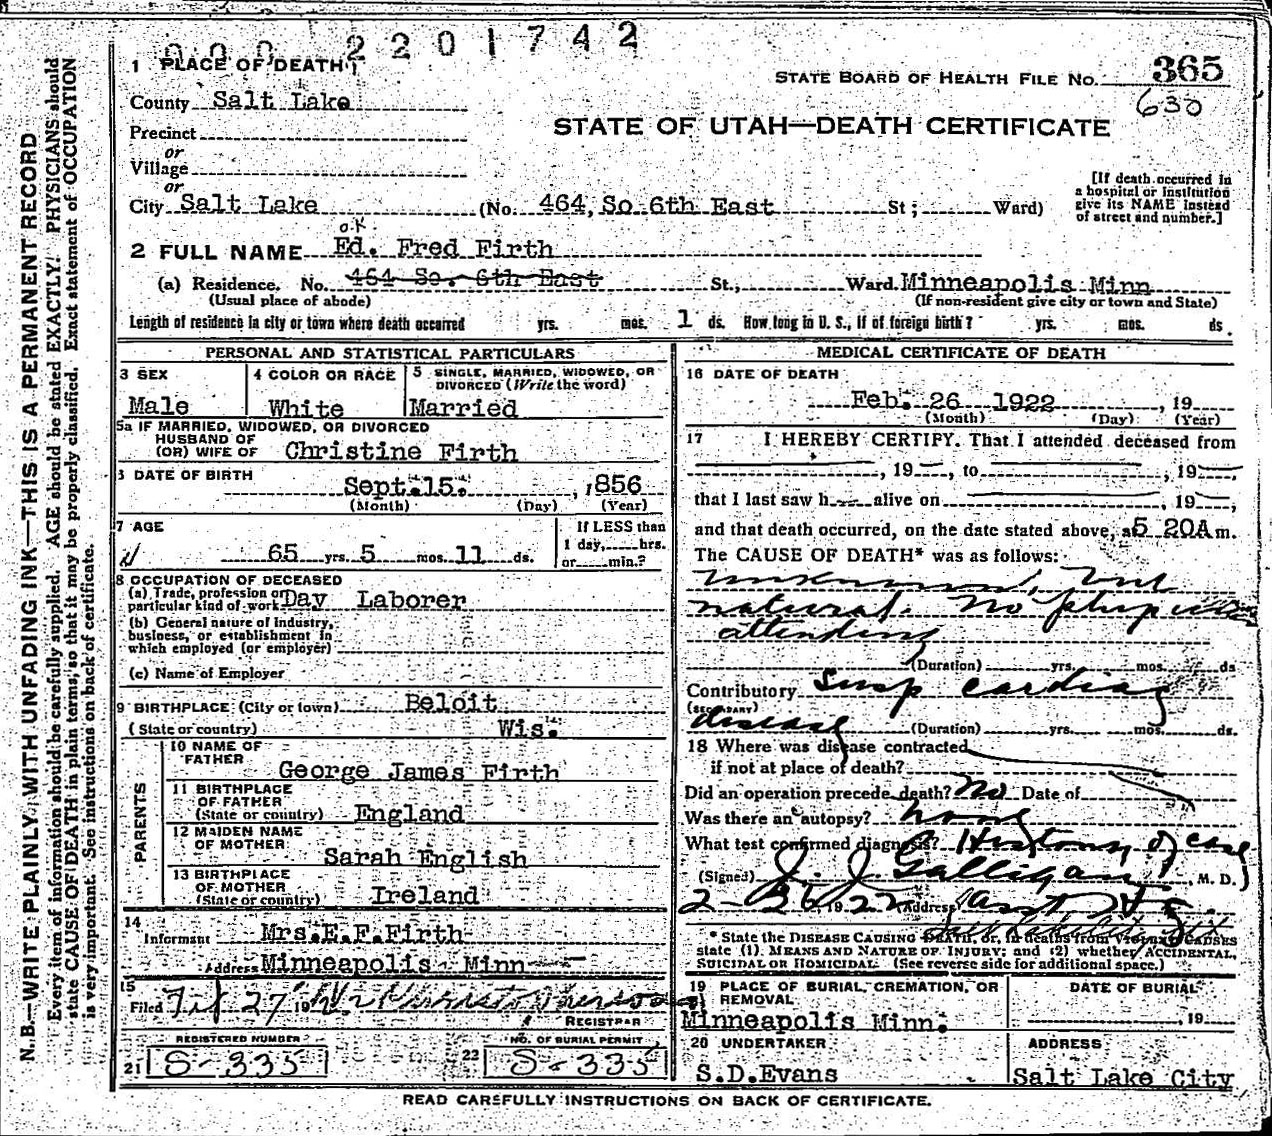 000 2201742
1 PLACE OF DEATH
STATE BOARD OF HEALTH FILE NO. 365
630
County Salt Lake
STATE OF UTAH—DEATH CERTIFICATE
Precinct
or
Village
or
City Salt Lake (No. 464, So 6th East St; Ward)
[If death occurred in
a hospital or institution
give its NAME instead
of street and number.]
O.K.
2 FULL NAME Ed. Fred Firth
(a) Residence. No. 464 So. 6th East St., Ward. Minneapolis Minn
(Usual place of abode) (If non-resident give city or town and State)
Length of residence in city or town where death occurred yrs. mos. 1 ds. How long in U. S., if of foreign birth? yrs. mos. ds.
PERSONAL AND STATISTICAL PARTICULARS
3 SEX
Male
4 COLOR OR RACE
White
5 SINGLE, MARRIED, WIDOWED, OR
DIVORCED (Write the word)
Married
5a IF MARRIED, WIDOWED, OR DIVORCED
HUSBAND OF
(OR) WIFE OF Christine Firth
6 DATE OF BIRTH
Sept. 15. , 1856
(Month) (Day) (Year)
7 AGE
65 yrs. 5 mos. 11 ds.
If LESS than
1 day, hrs.
or min.?
8 OCCUPATION OF DECEASED
(a) Trade, profession or
particular kind of work Day Laborer
(b) General nature of industry,
business, or establishment in
which employed (or employer)
(c) Name of Employer
9 BIRTHPLACE (City or town) Beloit
(State or country) Wis.
PARENTS
10 NAME OF
FATHER
George James Firth
11 BIRTHPLACE
OF FATHER
(State or country) England
12 MAIDEN NAME
OF MOTHER
Sarah English
13 BIRTHPLACE
OF MOTHER
(State or country) Ireland
14
Informant Mrs. E. F. Firth
Address Minneapolis Minn
15
Filed Feb 27 19
REGISTRAR
REGISTERED NUMBER
21 S-335
NO. OF BURIAL PERMIT
22 S-335
MEDICAL CERTIFICATE OF DEATH
16 DATE OF DEATH
Feb. 26 1922 , 19
(Month) (Day) (Year)
17 I HEREBY CERTIFY. That I attended deceased from
, 19 , to , 19
that I last saw h alive on , 19 ,
and that death occurred, on the date stated above, at 5 20A m.
The CAUSE OF DEATH* was as follows:
unknown, but
natural. No physician
attending
(Duration) yrs. mos. ds
Contributory Susp cardiac
(SECONDARY)
disease (Duration) yrs. mos. ds.
18 Where was disease contracted
if not at place of death?
Did an operation precede death? No Date of
Was there an autopsy? none
What test confirmed diagnosis? History of case
(Signed) J. J. Galligan, M. D.
2-26, 1922 Address Asst H. C.
Salt Lake City Ut
* State the DISEASE CAUSING DEATH, or, in deaths from VIOLENT CAUSES
state (1) MEANS AND NATURE OF INJURY; and (2) whether ACCIDENTAL,
SUICIDAL OR HOMICIDAL. (See reverse side for additional space.)
19 PLACE OF BURIAL, CREMATION, OR
REMOVAL
Minneapolis Minn.
DATE OF BURIAL
, 19
20 UNDERTAKER
S.D.Evans
ADDRESS
Salt Lake City
READ CAREFULLY INSTRUCTIONS ON BACK OF CERTIFICATE.
N.B.—WRITE PLAINLY WITH UNFADING INK—THIS IS A PERMANENT RECORD
Every item of information should be carefully supplied. AGE should be stated EXACTLY. PHYSICIANS should
state CAUSE OF DEATH in plain terms, so that it may be properly classified. Exact statement of OCCUPATION
is very important. See instructions on back of certificate.